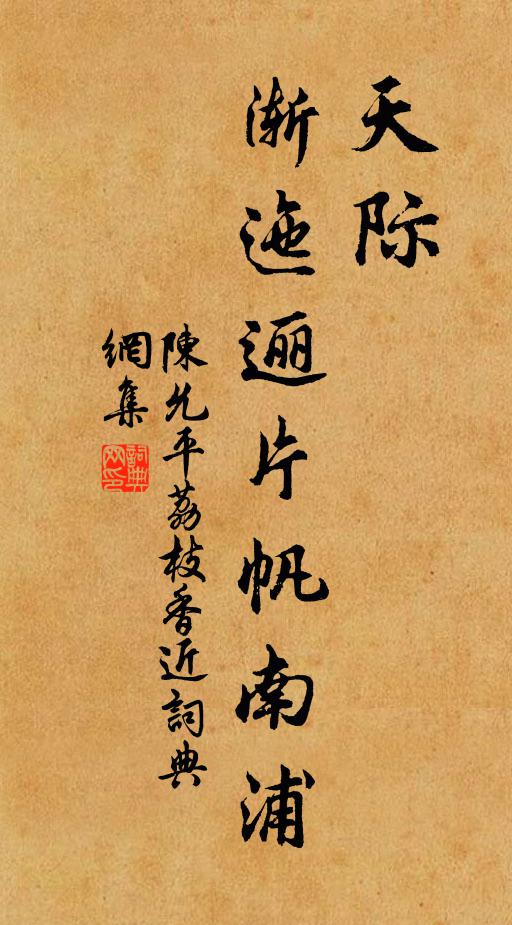 天际
渐迤逦片帆南浦
陳允平荔枝香近詞典
網集
詞典
网印